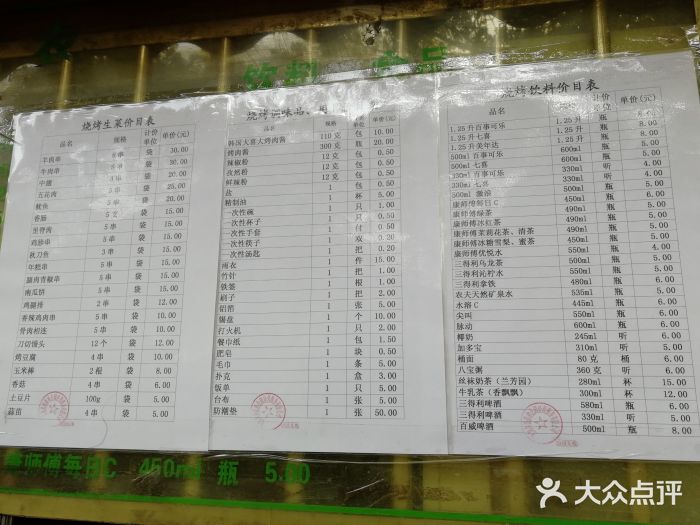 烧烤生菜价目表
品名 规格 计价单位 单价(元)
羊肉串 袋 30.00
牛肉串 袋 30.00
中翅 袋 25.00
五花肉 袋 20.00
鱿鱼 袋 20.00
香肠 袋 15.00
里脊肉 5串 袋 15.00
鸡胗串 5串 袋 15.00
秋刀鱼 袋 15.00
年糕串 5串 袋 15.00
腊肉青椒串 5串 袋 15.00
南瓜饼 5串 袋 15.00
鸡腿排 2串 袋 12.00
香辣鸡肉串 5串 袋 10.00
骨肉相连 5串 袋 10.00
刀切馒头 12个 袋 12.00
烤豆腐 4串 袋 10.00
玉米棒 2根 袋 8.00
香菇 4串 袋 6.00
土豆片 100g 袋 5.00
蒜苗 4串 袋 5.00
品名 规格 单位 单价(元)
韩国大喜大烤肉酱 110克 包 10.00
烤肉酱 300克 瓶 20.00
辣椒粉 12克 包 0.50
孜然粉 12克 包 0.50
鲜辣粉 12克 包 0.50
盐 1 包 0.50
精制油 1 杯 5.00
一次性碗 1 只 1.00
一次性杯子 1 只 0.50
一次性手套 1 付 0.50
一次性筷子 1 双 0.20
一次性汤匙 1 把 0.20
雨衣 1 件 15.00
竹签 1 把 1.00
铁签 1 根 1.00
刷子 1 把 2.00
铝箔 1 张 5.00
锡盘 1 个 10.00
打火机 1 只 2.00
餐巾纸 1 包 1.50
肥皂 1 块 0.50
毛巾 1 条 5.00
扑克 1 盒 3.00
饭单 1 只 5.00
台布 1 张 5.00
防潮垫 1 张 50.00
烧烤饮料价目表
品名 规格 计价单位 单价(元)
1.25升百事可乐 1.25升 瓶 8.00
1.25升七喜 1.25升 瓶 8.00
1.25升美年达 1.25升 瓶 8.00
500ml百事可乐 600ml 瓶
500ml七喜 500ml 瓶
330ml百事可乐 330ml 听 4.00
330ml七喜 330ml 听 4.00
500ml激浪 500ml 瓶
康师傅每日C 450ml 瓶 5.00
康师傅绿茶 490ml 瓶
康师傅冰红茶 490ml 瓶
康师傅茉莉花茶、清茶 瓶
康师傅冰糖雪梨、蜜茶 瓶
康师傅优悦水 550ml 瓶 4.00
三得利乌龙茶 500ml 瓶 5.00
三得利沁柠水 550ml 瓶 5.00
三得利拿铁 480ml 瓶 6.00
农夫天然矿泉水 535ml 瓶 5.00
水溶C 445ml 瓶 6.00
尖叫 550ml 瓶 6.00
脉动 600ml 瓶 6.00
椰奶 245ml 听 5.00
加多宝 310ml 听 5.00
桶面 80克 桶 6.00
八宝粥 360克 听 6.00
丝袜奶茶(兰芳园) 280ml 杯 15.00
牛乳茶(香飘飘) 300ml 杯 12.00
三得利啤酒 580ml 瓶 6.00
三得利啤酒 330ml 听 5.00
百威啤酒 500ml 瓶 8.00
康师傅每日C 450ml 瓶 5.00
大众点评